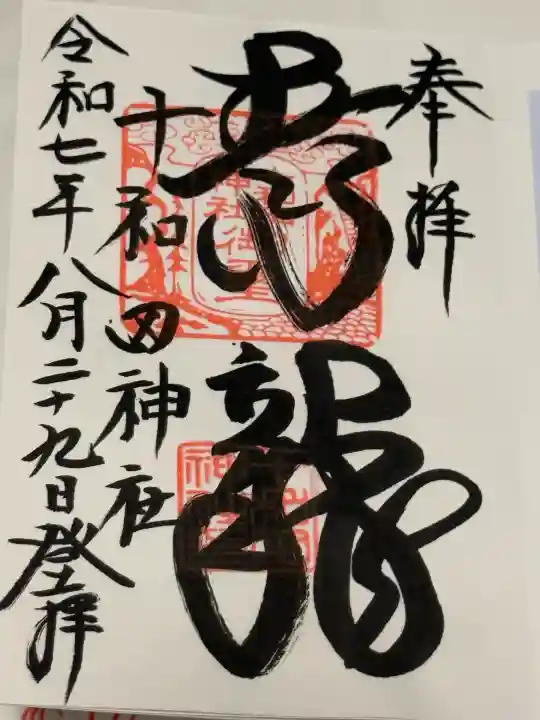 奉拝
青龍
十和田神社
令和七年八月二十九日登拝